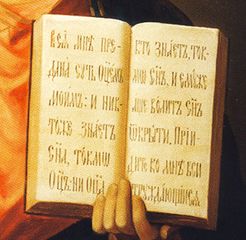 Всѧ мнѣ пре-
дана сꙋть Оц҃емъ
моимъ: и ник-
тоже знаетъ
Сн҃а, токмѡ
Оц҃ъ: ни Оц҃а
кто знаетъ, ток-
мѡ Сн҃ъ, и емꙋже
аще волитъ Сн҃ъ
ѿкрыти, Прїи-
дите ко мнѣ вси
трꙋждающїисѧ